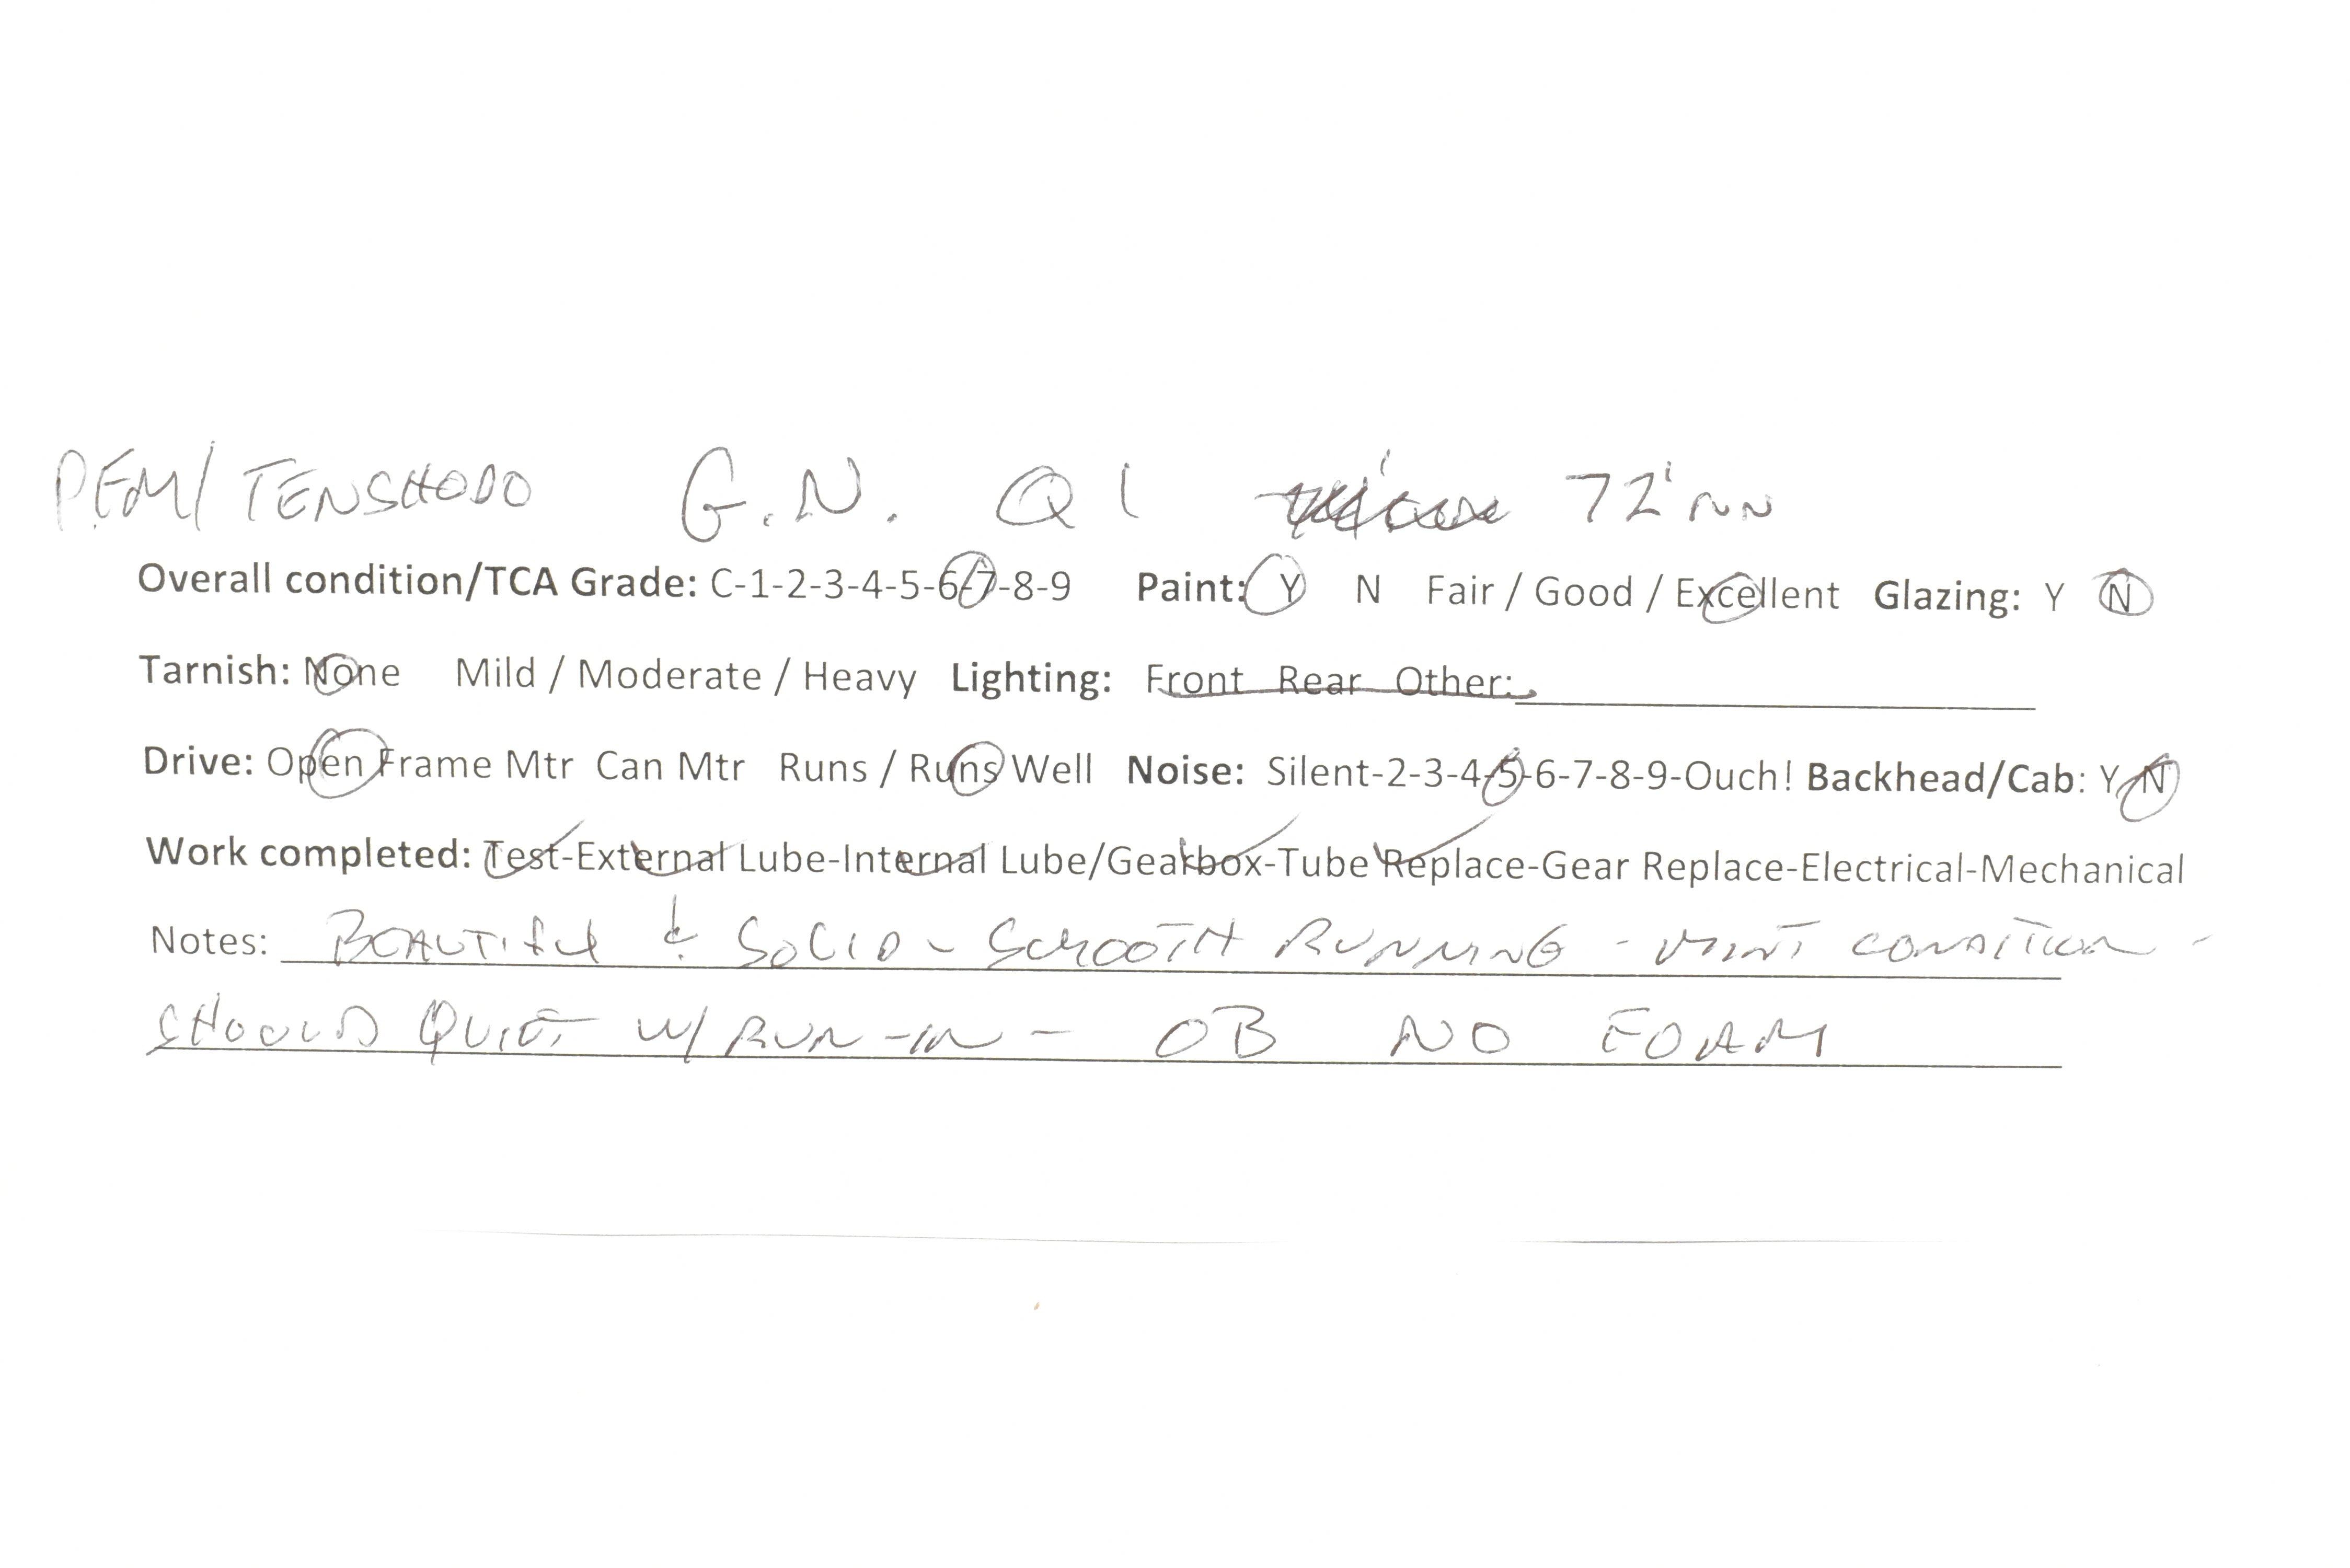 PFM/TENSHODO G.N. Q1 72'
Overall condition/TCA Grade: C-1-2-3-4-5-6-7-8-9 Paint: Y N Fair / Good / Excellent Glazing: Y N
Tarnish: None Mild / Moderate / Heavy Lighting: Front Rear Other:
Drive: Open Frame Mtr Can Mtr Runs / Runs Well Noise: Silent-2-3-4-5-6-7-8-9-Ouch! Backhead/Cab: Y N
Work completed: Test-External Lube-Internal Lube/Gearbox-Tube Replace-Gear Replace-Electrical-Mechanical
Notes: BEAUTIFUL & SOLID - SMOOTH RUNNING - MINT CONDITION -
SHOULD QUIET W/ RUN-IN - OB NO FOAM